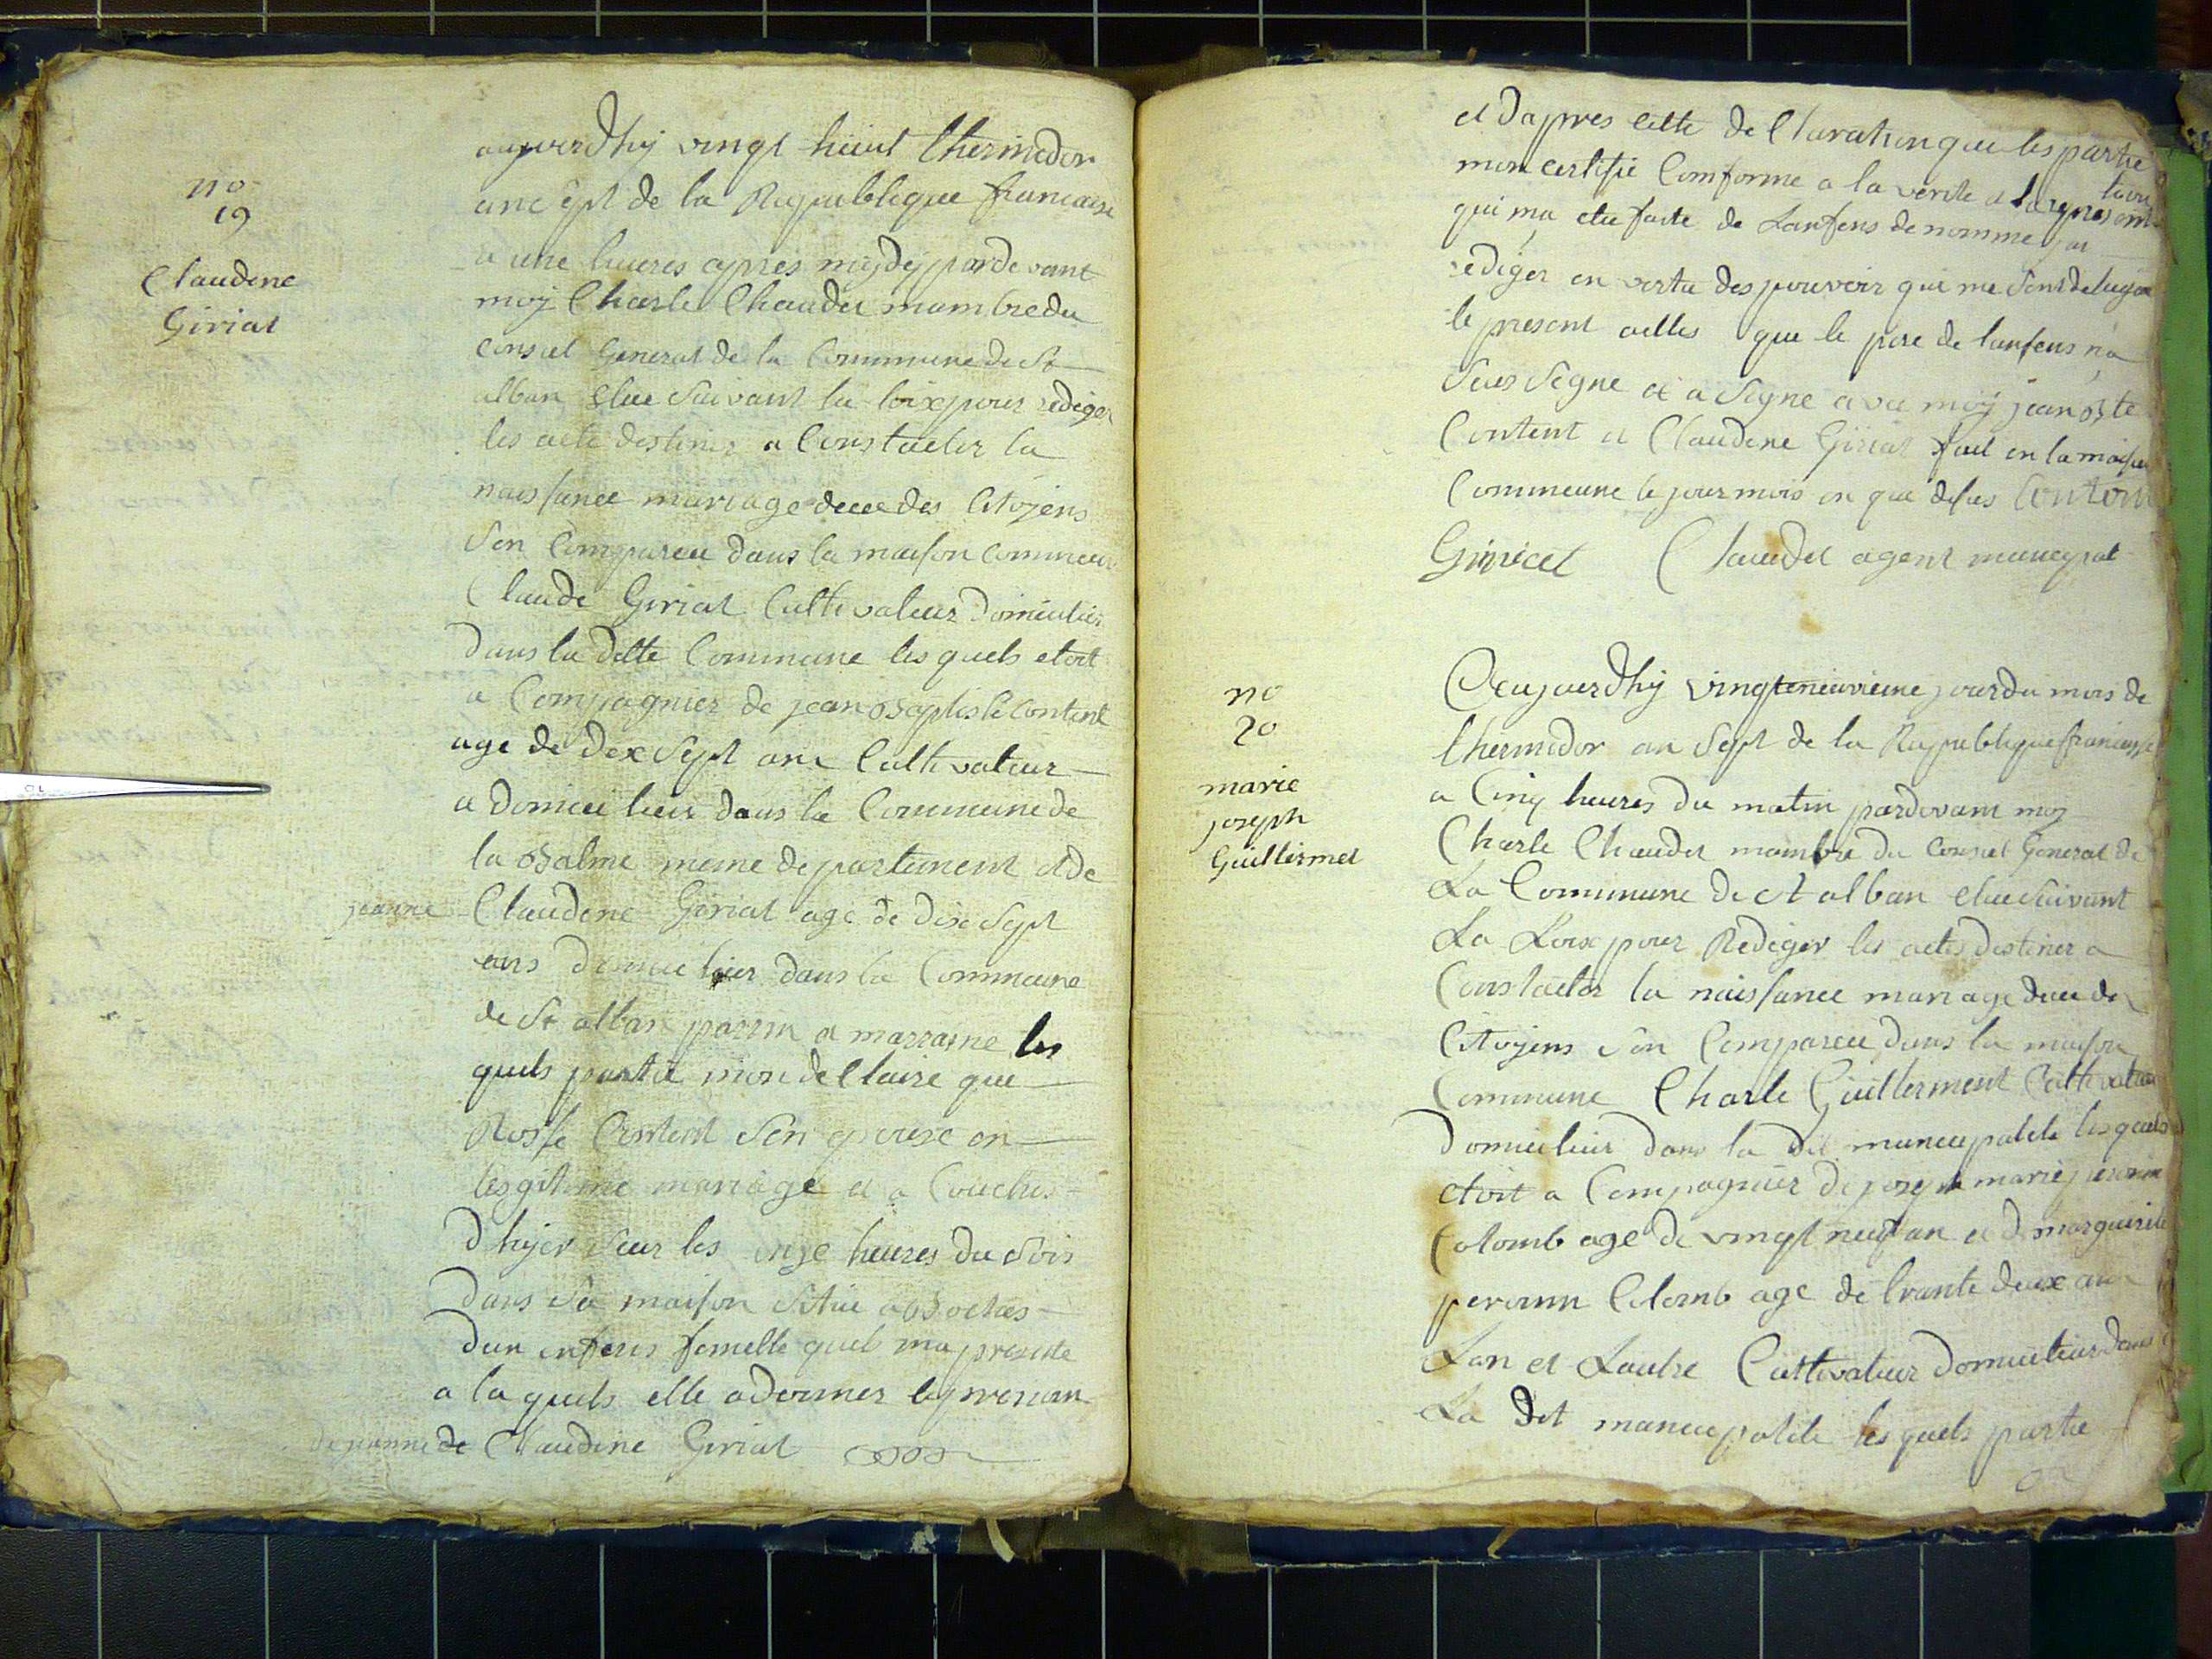 no
19
Claudene
Giriat
aujourdhy vingt huiit thermidor
anc ept de la Republique francaise
a une heures apres mydy pardevant
moy Charle Chaudet mambre du
conseil General de la Commune de St
alban elue Suivant la loix pour rediger
les acte destiner a Constaeter la
naissance mariage decedes Citoyens
Son Compareu dans la maison commeun
Claude Giriat Cultivateur domicilier
dans la ditte Commune les quels etoit
a Compagnier de jean Baptiste Content
age de dix Sept ans Cultivateur
a domicilier dans la Commune de
la Balme meme departement et de
jeanne Claudene Giriat age de dix Sept
ans domicilier dans la Commune
de St alban parrin et marraine les
quels partie mon dellaire que
Rosse Content Son epouse en
lesgitime mariage et a Couches
dhyer Sur les onze heures du Soir
dans Sa maison Situe a Boches
dun enfens femelle quel ma presente
a la quels elle a donner le prenom
de jeanne de Claudine Giriat
et dapres cette dellaration que les partie
mon certifie Comforme a la verite et la representation
qui ma etee faite de Lanfens denomme jai
rediger en vertu des pouvoir qui me Sont delegue
le present acttes que le pere de lanfens na
Seus Signe et a Signe avec moy jean Bte
Content et Claudene Giriat fait en la maison
Commeune le jour mois en que desus Content
Giriat Chaudet agent municipal
no
20
marie
joseph
Guillermet
Aujourdhy vingteneuvieme jour du mois de
thermidor an Sept de la Republique francaise
a Cinq heures du matin pardevant moy
Charle Chaudet mambre du Conseil General de
La Commune de St alban elue Suivant
La Loix pour Rediger les actes destiner a
Constaeter la naissance mariage decedes
Citoyens Son Compareu dans la maison
Commune Charle Guillerment Cultivateur
domicilier dans la dit municipalite les quels
etoit a Compagnier de joseph marie perounn
Colomb age de vingt neuf an et de marguerite
perounn Colomb age de trante deux an
Lun et Lautre Cultivateur domicilier dans
La dit municipalite les quels partie